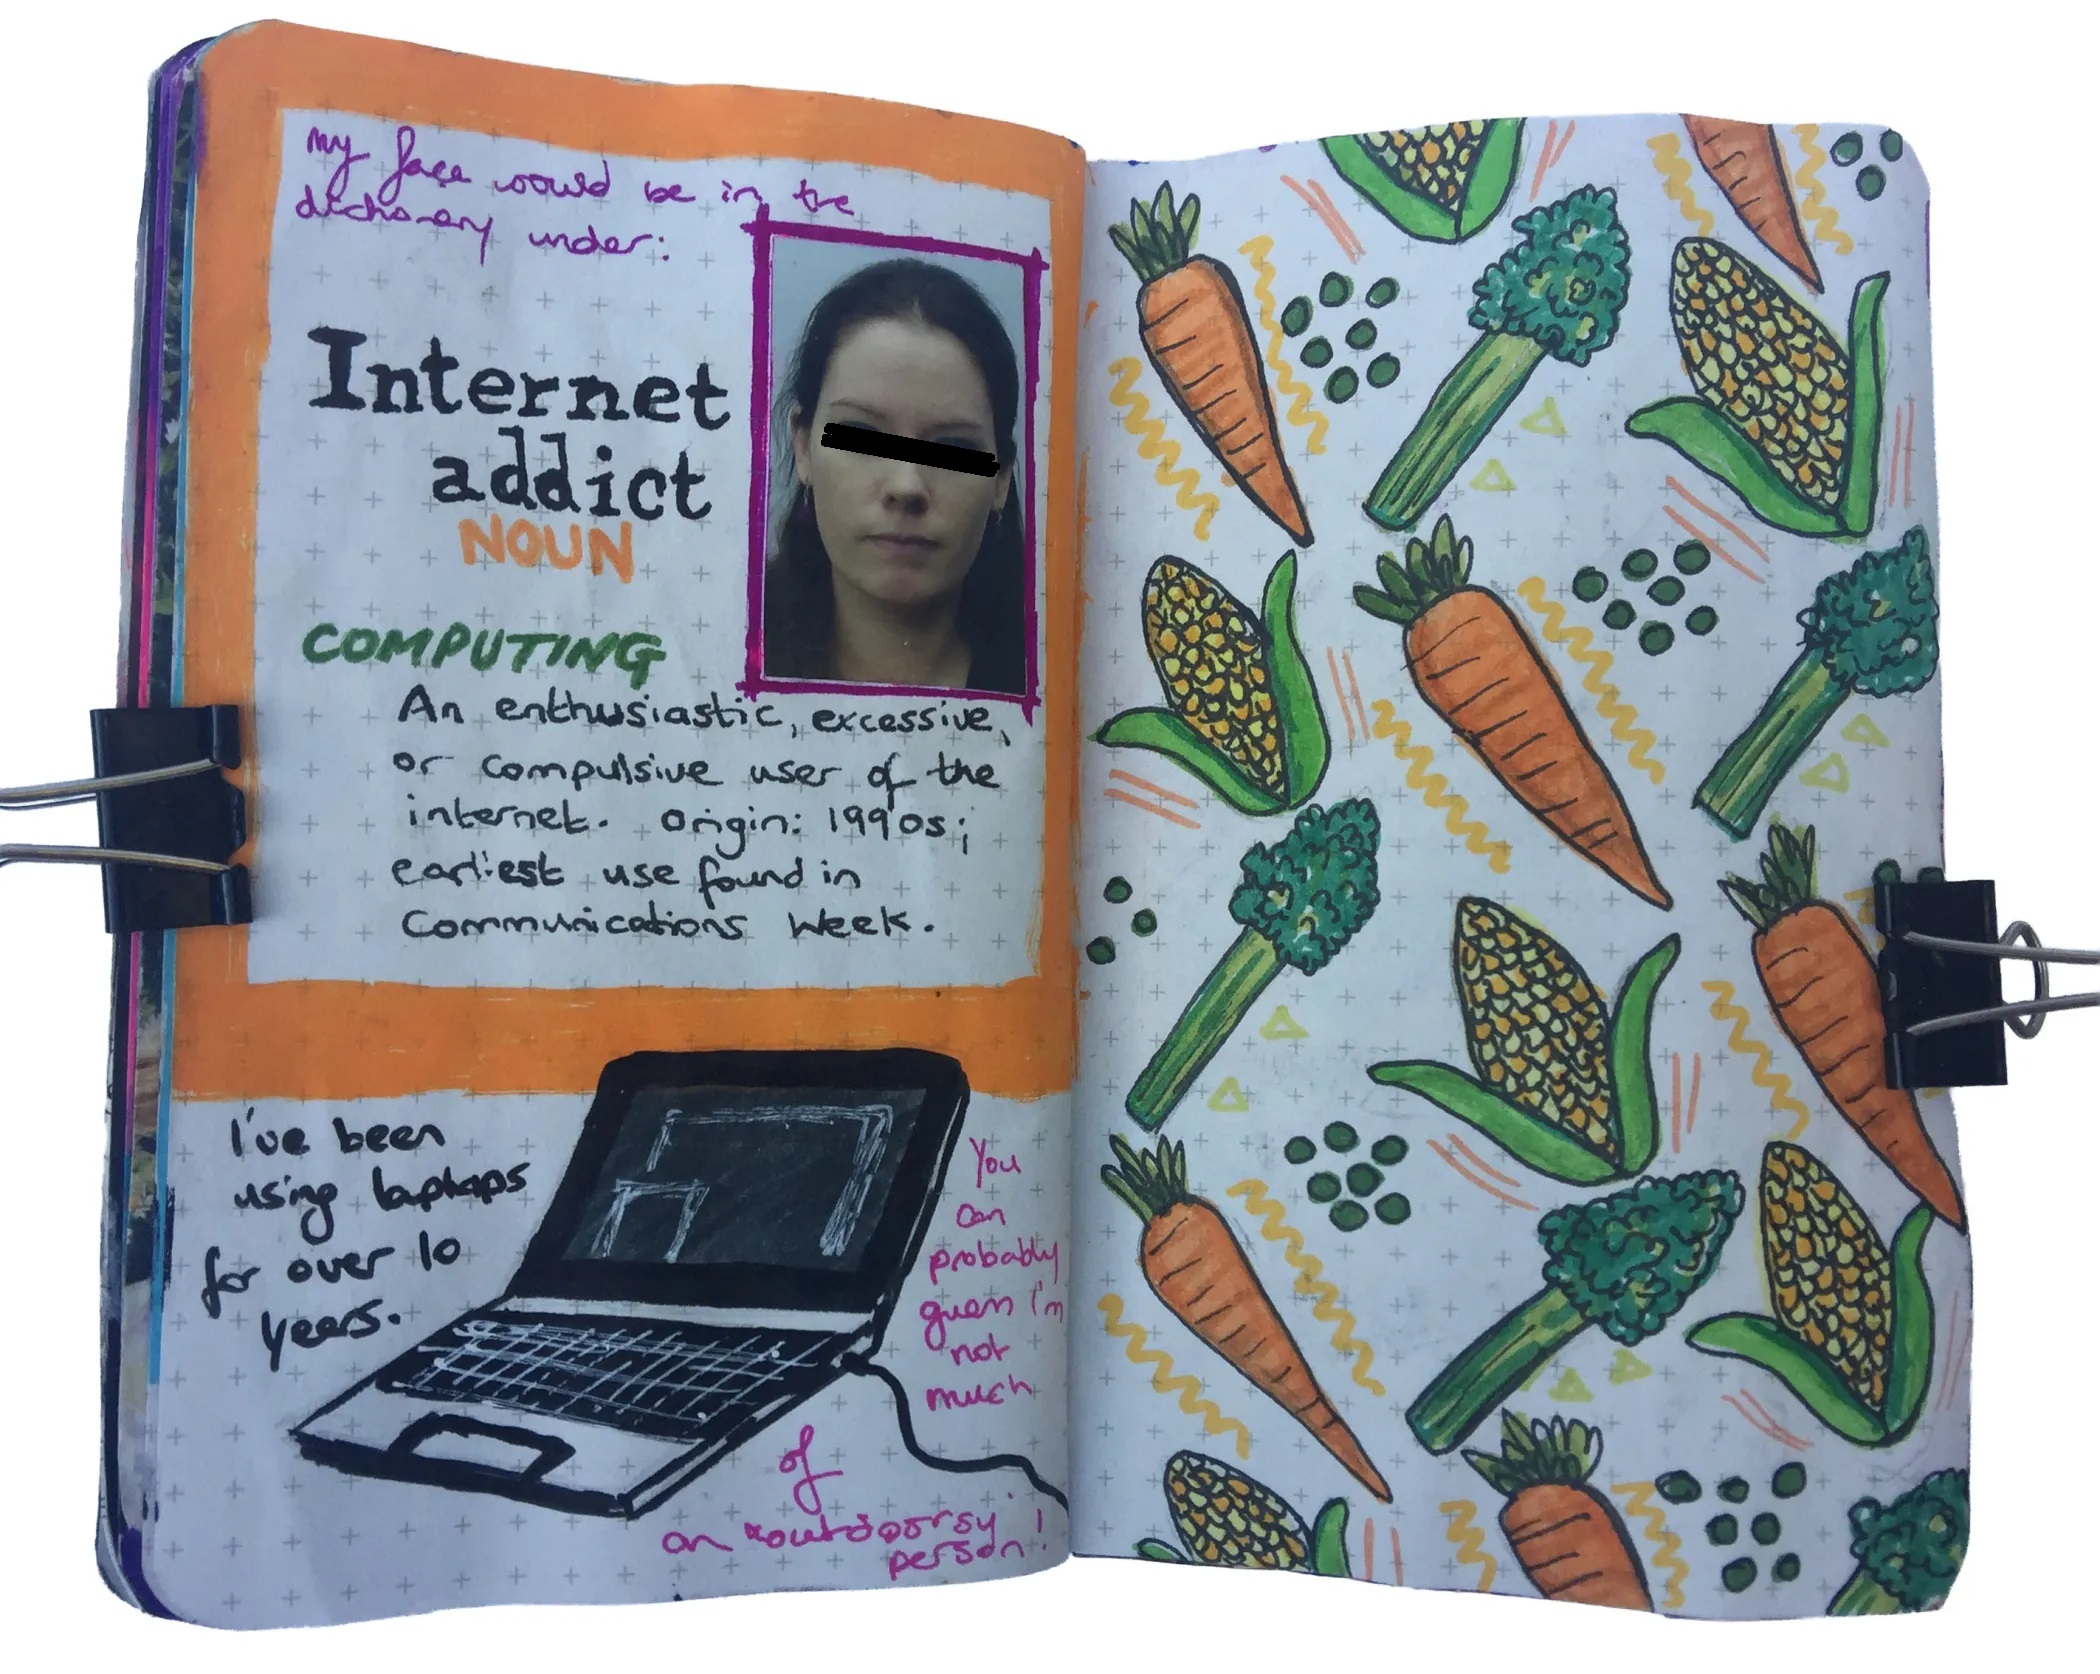 my face would be in the
dictionary under:
Internet
addict
NOUN
COMPUTING
An enthusiastic, excessive,
or compulsive user of the
internet. Origin: 1990s;
earliest use found in
Communications Week.
I've been
using laptops
for over 10
years.
You
can
probably
guess I'm
not
much
of
an "outdoorsy"
person!